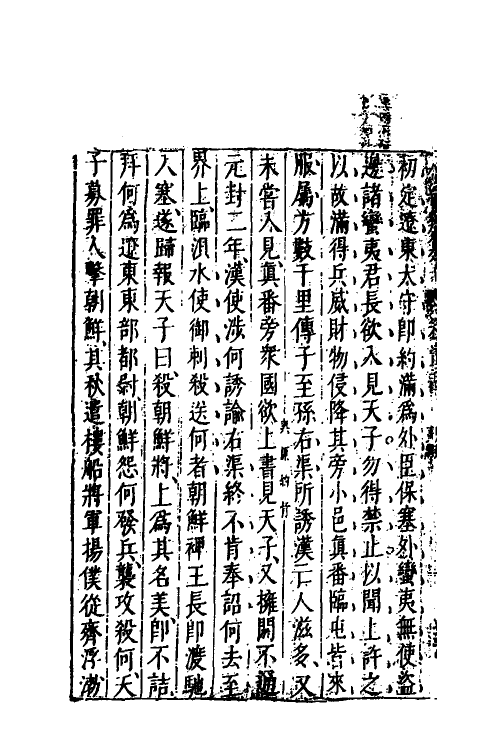 初定遼東太守卽約滿爲外臣保塞外蠻夷無使盜
邊諸蠻夷君長欲入見天子勿得禁止以聞上許之
以故滿得兵威財物侵降其旁小邑眞番臨屯皆來
服屬方數千里傳子至孫右渠所誘漢亡人滋多又
未嘗入見眞番旁衆國欲上書見天子又擁閼不通
元封二年漢使涉何誘諭右渠終不肯奉詔何去至
界上臨浿水使御刺殺送何者朝鮮裨王長卽渡馳
入塞遂歸報天子曰殺朝鮮將上爲其名美卽不詰
拜何爲遼東東部都尉朝鮮怨何發兵襲攻殺何天
子募罪人擊朝鮮其秋遣樓船將軍揚僕從齊浮渤